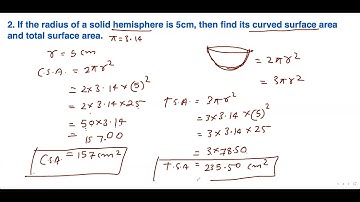 2. If the radius of a solid hemisphere is 5cm, then find its curved surface area
and total surface area. π=3.14
r = 5 cm
C.S.A. = 2πr²
= 2×3.14×(5)²
= 2×3.14×25
= 50×3.14
= 157.00
C.S.A = 157 cm²
= 2πr²
= 3πr²
T.S.A. = 3πr²
= 3×3.14×(5)²
= 3×3.14×25
= 3×78.50
T.S.A = 235.50 cm²